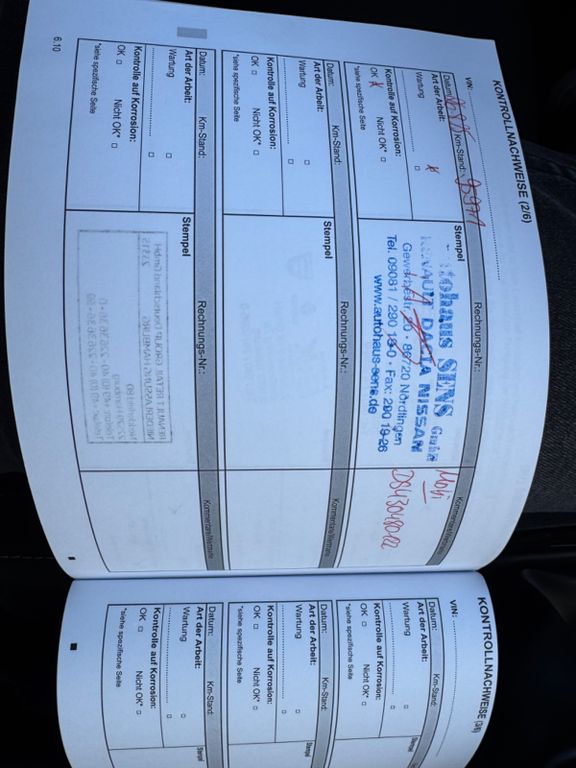 KONTROLLNACHWEISE (2/6)
VIN:
Datum: Km-Stand:
Art der Arbeit:
Wartung
Kontrolle auf Korrosion:
OK Nicht OK*
*siehe spezifische Seite
Rechnungs-Nr.:
Stempel
Autohaus SENS GmbH
RENAULT DACIA NISSAN
Gewerbestr. 26 • 86720 Nördlingen
Tel. 09081 / 290 19-0 • Fax: 290 19-26
www.autohaus-sens.de
Kommentare/Vermerke
Mobi
Datum: Km-Stand:
Art der Arbeit:
Wartung
Kontrolle auf Korrosion:
OK Nicht OK*
*siehe spezifische Seite
Rechnungs-Nr.:
Stempel
Kommentare/Vermerke
Datum: Km-Stand:
Art der Arbeit:
Wartung
Kontrolle auf Korrosion:
OK Nicht OK*
*siehe spezifische Seite
Rechnungs-Nr.:
Stempel
Kommentare/Vermerke
6.10
KONTROLLNACHWEISE (3/6)
VIN:
Datum: Km-Stand:
Art der Arbeit:
Wartung
Kontrolle auf Korrosion:
OK Nicht OK*
*siehe spezifische Seite
Stempel
Datum: Km-Stand:
Art der Arbeit:
Wartung
Kontrolle auf Korrosion:
OK Nicht OK*
*siehe spezifische Seite
Stempel
Datum: Km-Stand:
Art der Arbeit:
Wartung
Kontrolle auf Korrosion:
OK Nicht OK*
*siehe spezifische Seite
Stempel